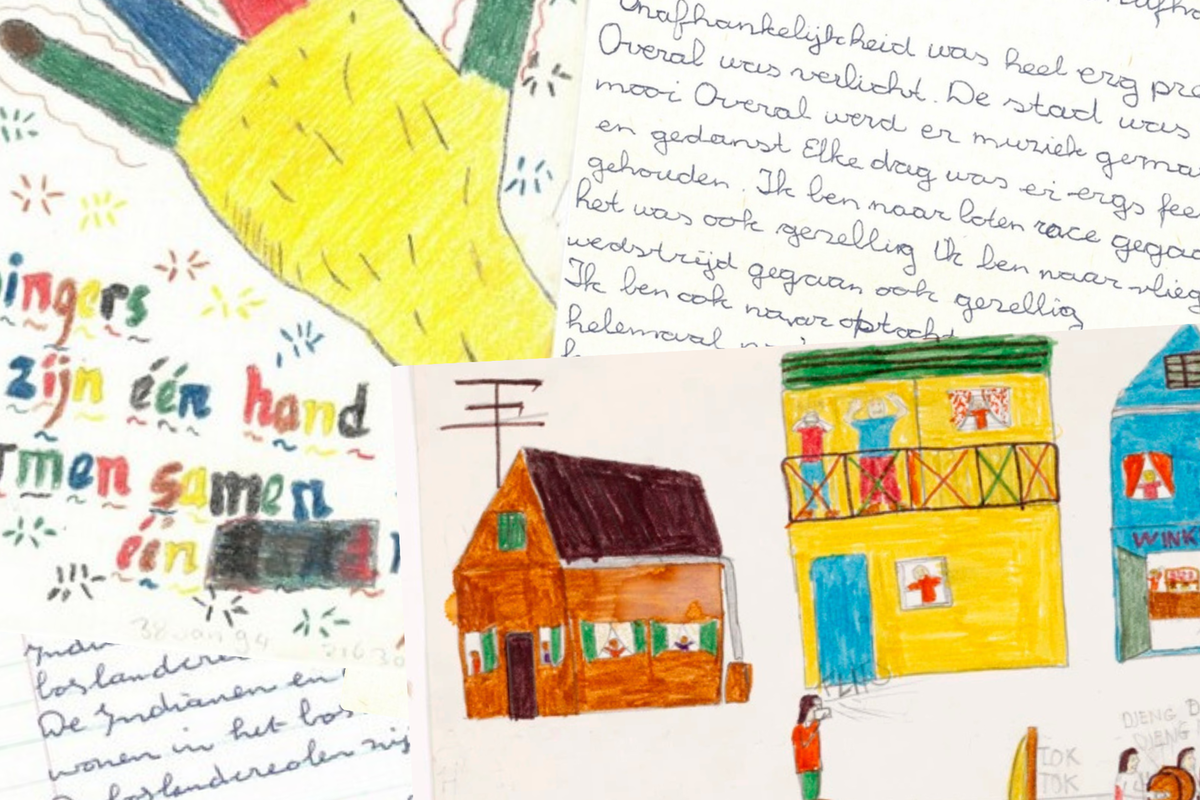 Onafhankelijkheid was heel erg
Overal was verlicht. De stad was
mooi Overal werd er muziek
en gedanst Elke dag was er ergs
gehouden. Ik ben naar boten race
het was ook gezellig Ik ben naar
wedstrijd gegaan ook gezellig
Ik ben ook naar optocht
helemaal
zijn één hand
samen
één
38 van 94
boslandcre
De Indianen en
wonen in het bos
boslandcreolen
WINK
TOK
TOK
DJENG
DJENG